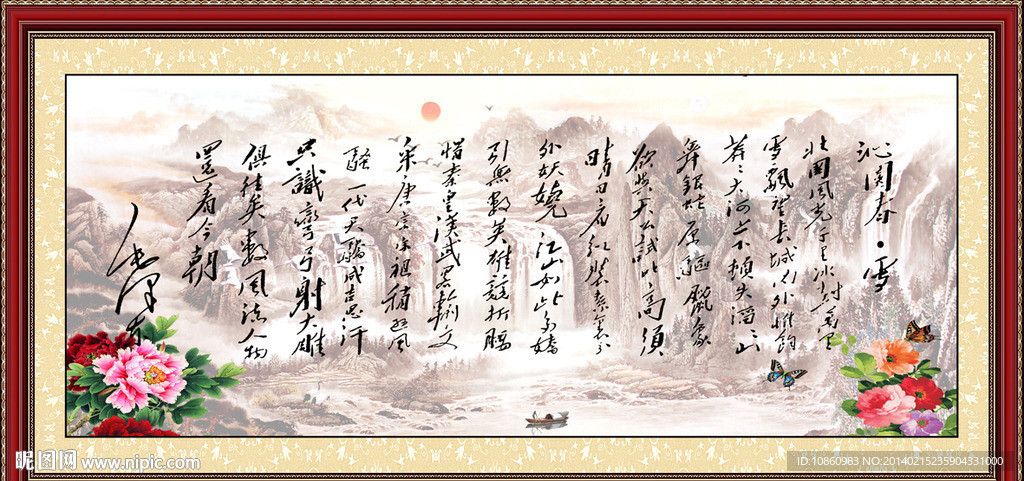 沁園春·雪
北國風光千里冰封萬里
雪飄望長城內外惟餘
莽莽大河上下頓失滔滔山
舞銀蛇原驅臘象
欲與天公試比高須
晴日看紅裝素裹分
外妖嬈江山如此多嬌
引無數英雄競折腰
惜秦皇漢武略輸文
采唐宗宋祖稍遜風
騷一代天驕成吉思汗
只識彎弓射大雕
俱往矣數風流人物
還看今朝
毛澤東
昵图网 www.nipic.com
ID:10860983 NO:20140215235904331000